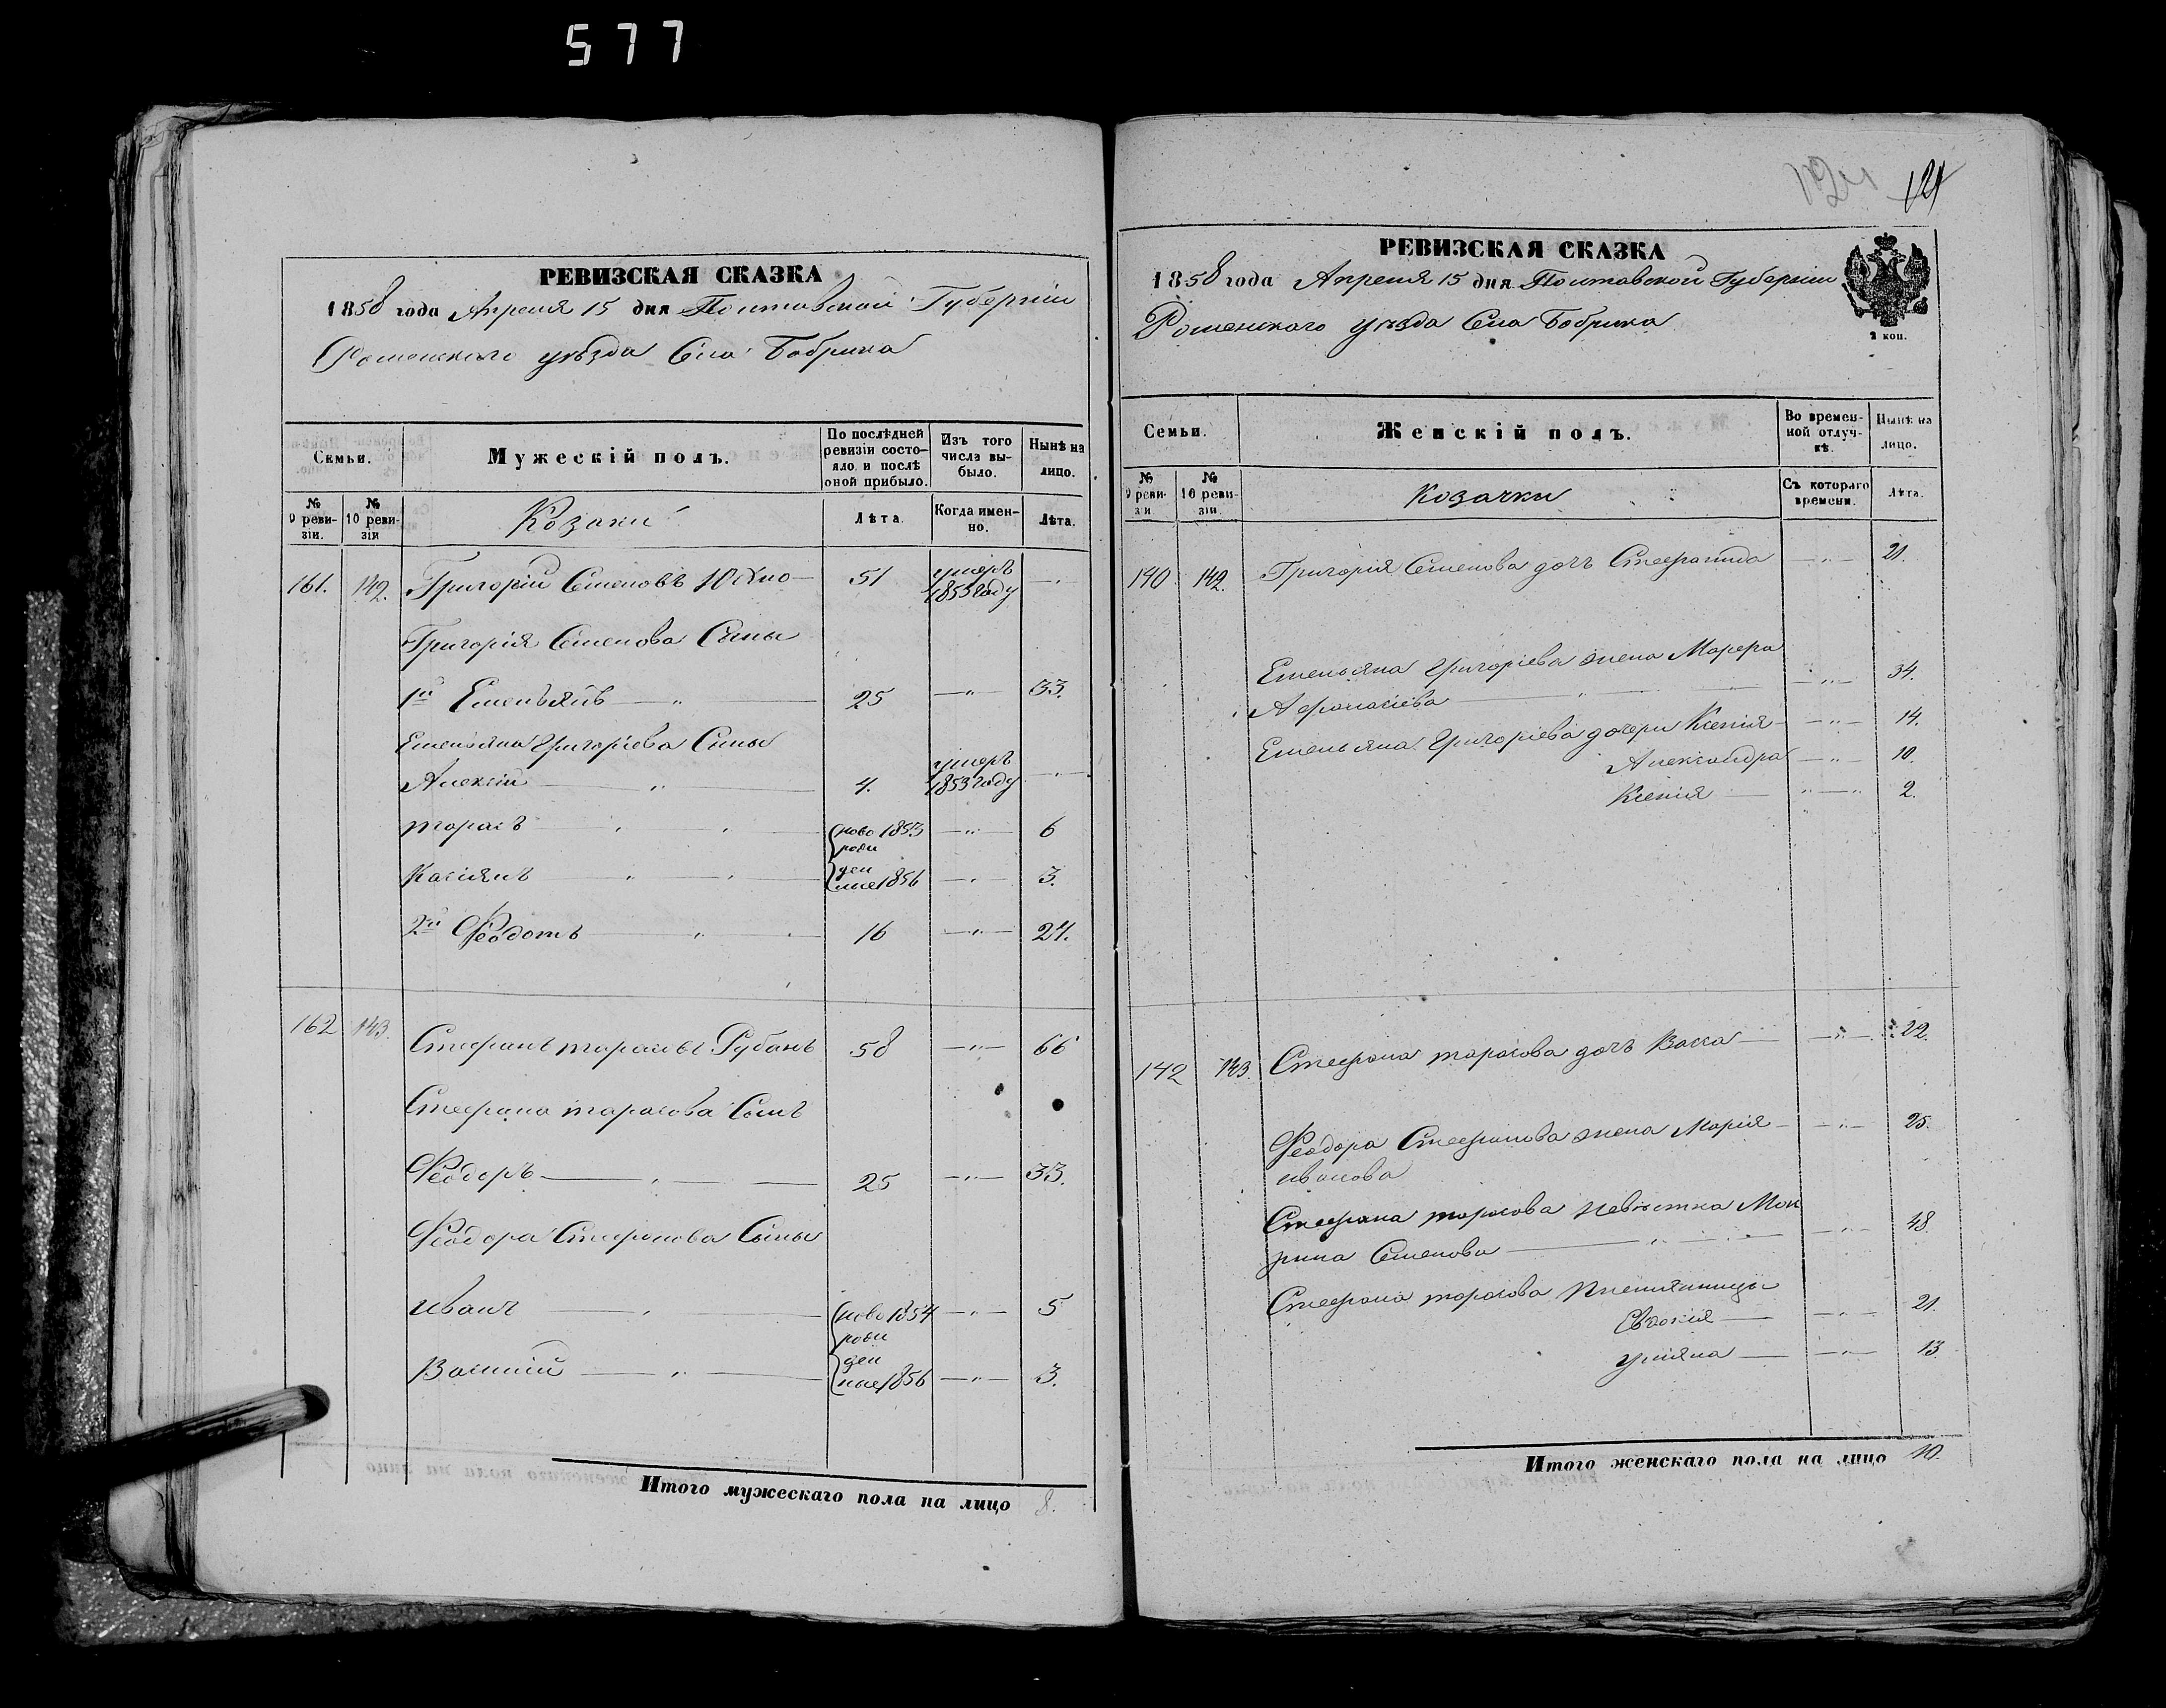 577
РЕВИЗСКАЯ СКАЗКА
1858 года Апреля 15 дня Полтавской Губерніи
Роменскаго уѣзда Села Бобрика
Семьи.
Мужескій полъ.
По послѣдней ревизіи состояло и послѣ оной прибыло.
Изъ того числа выбыло.
Нынѣ на лицо.
№ 9 ревизіи.
№ 10 ревизіи
Козаки
Лѣта.
Когда именно.
Лѣта.
161. 142. Григорій Семеновъ 51 умеръ 1853 году
Григорія Семенова Сыны
1й Емельянъ 25 33.
Емельяна Григоріева Сыны
Алексій 4. умеръ 1853 году
Тарасъ ново 1853 6
роли
Касіянъ ден ные 1856 3.
2й Феодотъ 16 24.
162 143. Стефанъ Тарасовъ Рубанъ 58 66
Стефана Тарасова Сынъ
Феодоръ 25 33.
Феодора Стефанова Сыны
Иванъ ново 1854 5
роди
Василий ден ные 1856 3.
Итого мужескаго пола на лицо 8.
124 121
РЕВИЗСКАЯ СКАЗКА
1858 года Апреля 15 дня Полтавской Губерніи
Роменскаго уѣзда Села Бобрика
2 коп.
Семьи.
Женскій полъ.
Во временной отлучкѣ.
Нынѣ на лицо.
№ 9 ревизіи
№ 10 ревизіи.
Козачки
Съ котораго времени.
Лѣта.
140 142. Григорія Семенова дочь Стефанида 21.
Емельяна Григоріева жена Марфа
Афанасіева 34.
Емельяна Григоріева дочери Ксенія 14.
Александра 10.
Ксенія 2.
142 143. Стефана Тарасова дочь Васса 22.
Феодора Стефанова жена Марія 25.
Иванова
Стефана Тарасова невѣстка Мок
рина Семенова 48.
Стефана Тарасова Племянницы
Евдокія 21.
Уліяна 13.
Итого женскаго пола на лицо 10.